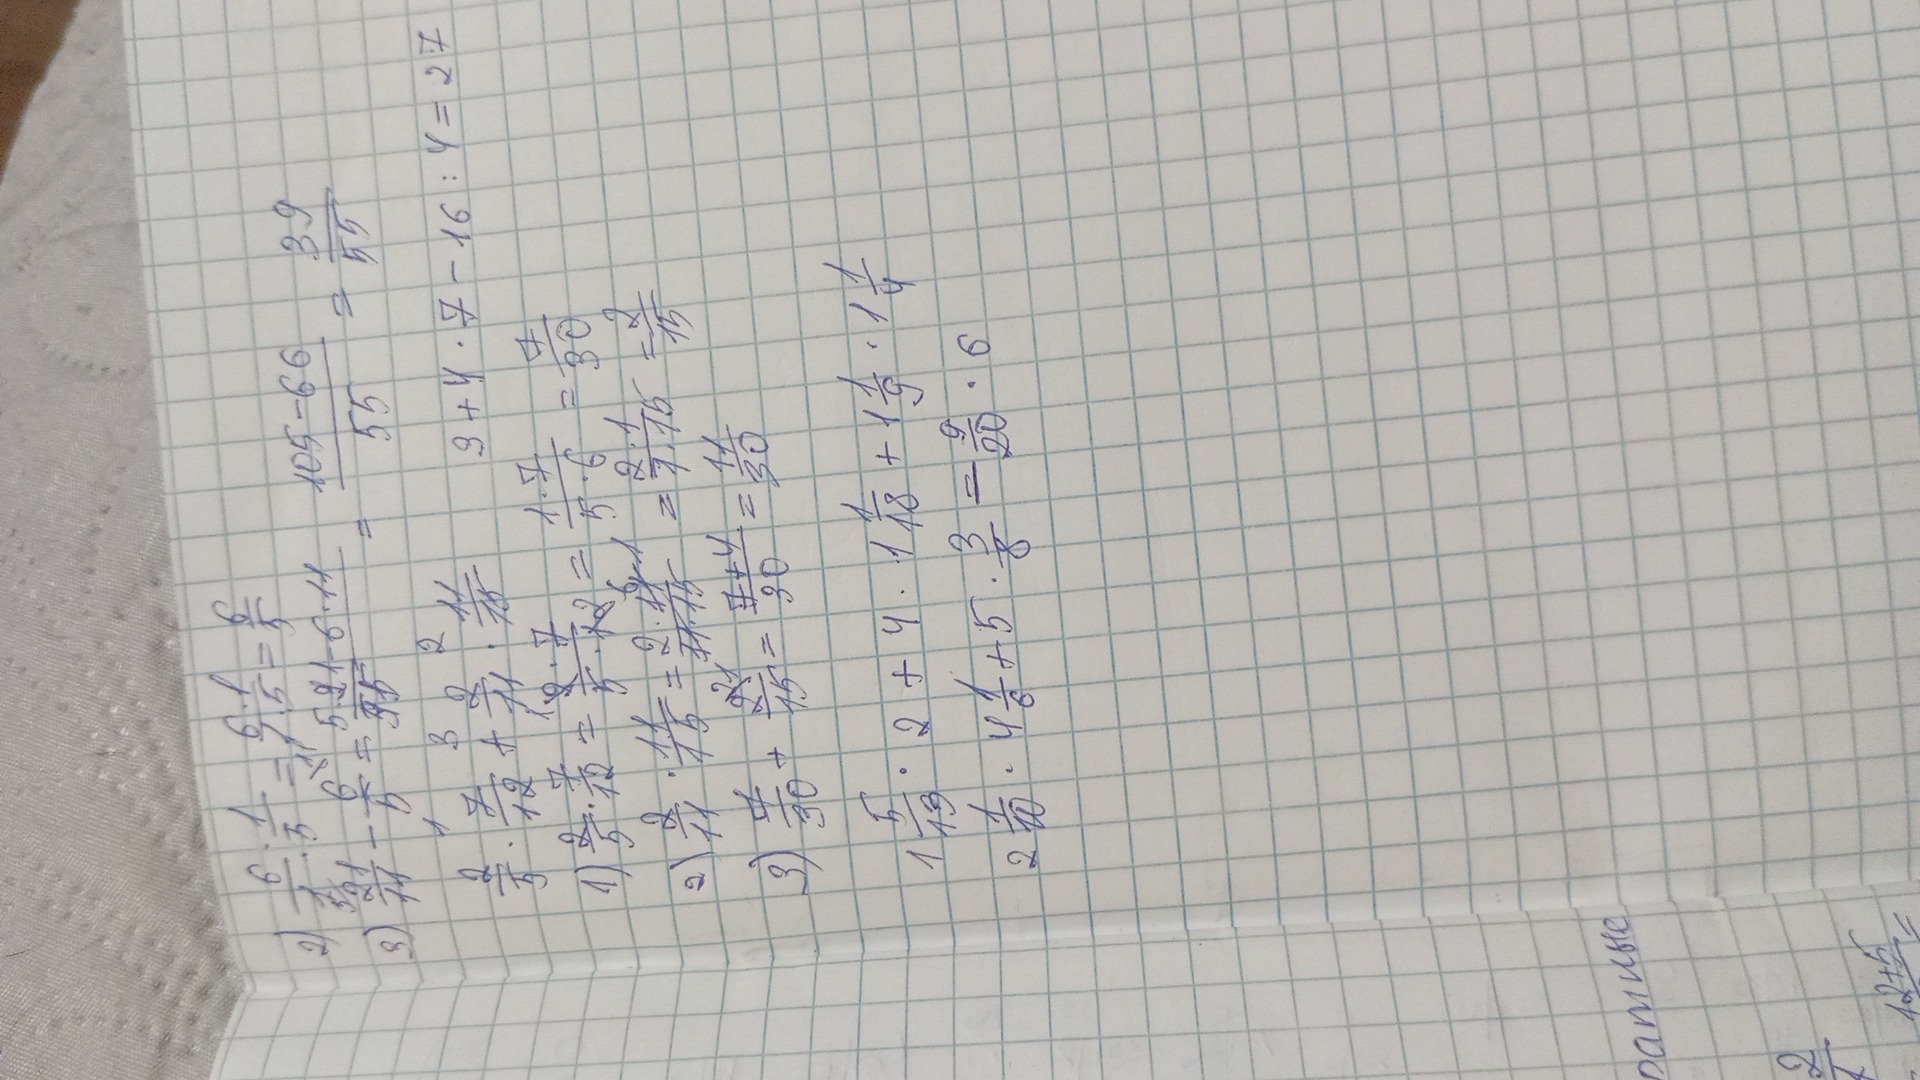 2) 6/1 · 1/5 = 6·1/1·5 = 6/5
3) 21/11 - 6/5 = 5·21-6·11/55 = 105-66/55 = 39/55
1 3 2
3+4·7-16:4=27
2/5 · 7/12 + 2/11 · 11/15
1) 2/5 · 7/12 = 2·7/5·12 = 1·7/5·6 = 7/30
2) 2/11 · 11/15 = 2·11/11·15 = 2·1/1·15 = 2/15
3) 7/30 + 2/15 = 7+4/30 = 11/30
1 5/13 · 2 + 4 · 1 1/18 + 1 1/9 · 1 1/4
2 1/10 · 4 1/6 + 5 · 3/8 - 9/20 · 6
ратные
12+5